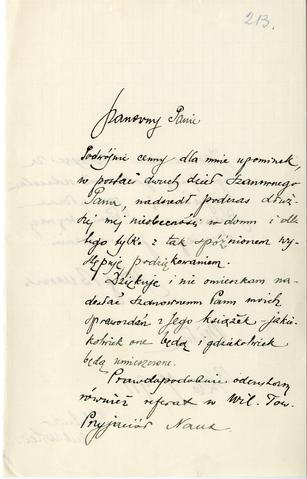 213.
Szanowny Panie
Podwójnie cenny dla mnie upominek,
w postaci dwuch dzieł Szanownego
Pana, nadszedł podczas dłuż-
szej mej nieobecności w domu i dla
tego tylko z tak spóźnionem wy-
stępuję podziękowaniem.
Dziękuję i nie omieszkam na-
desłać Szanownemu Panu moich
sprawozdań z Jego książek - jakie-
kolwiek one będą i gdziekolwiek
będą umieszczone.
Prawdopodobnie odczytam
również referat w Wil. Tow.
Przyjaciół Nauk